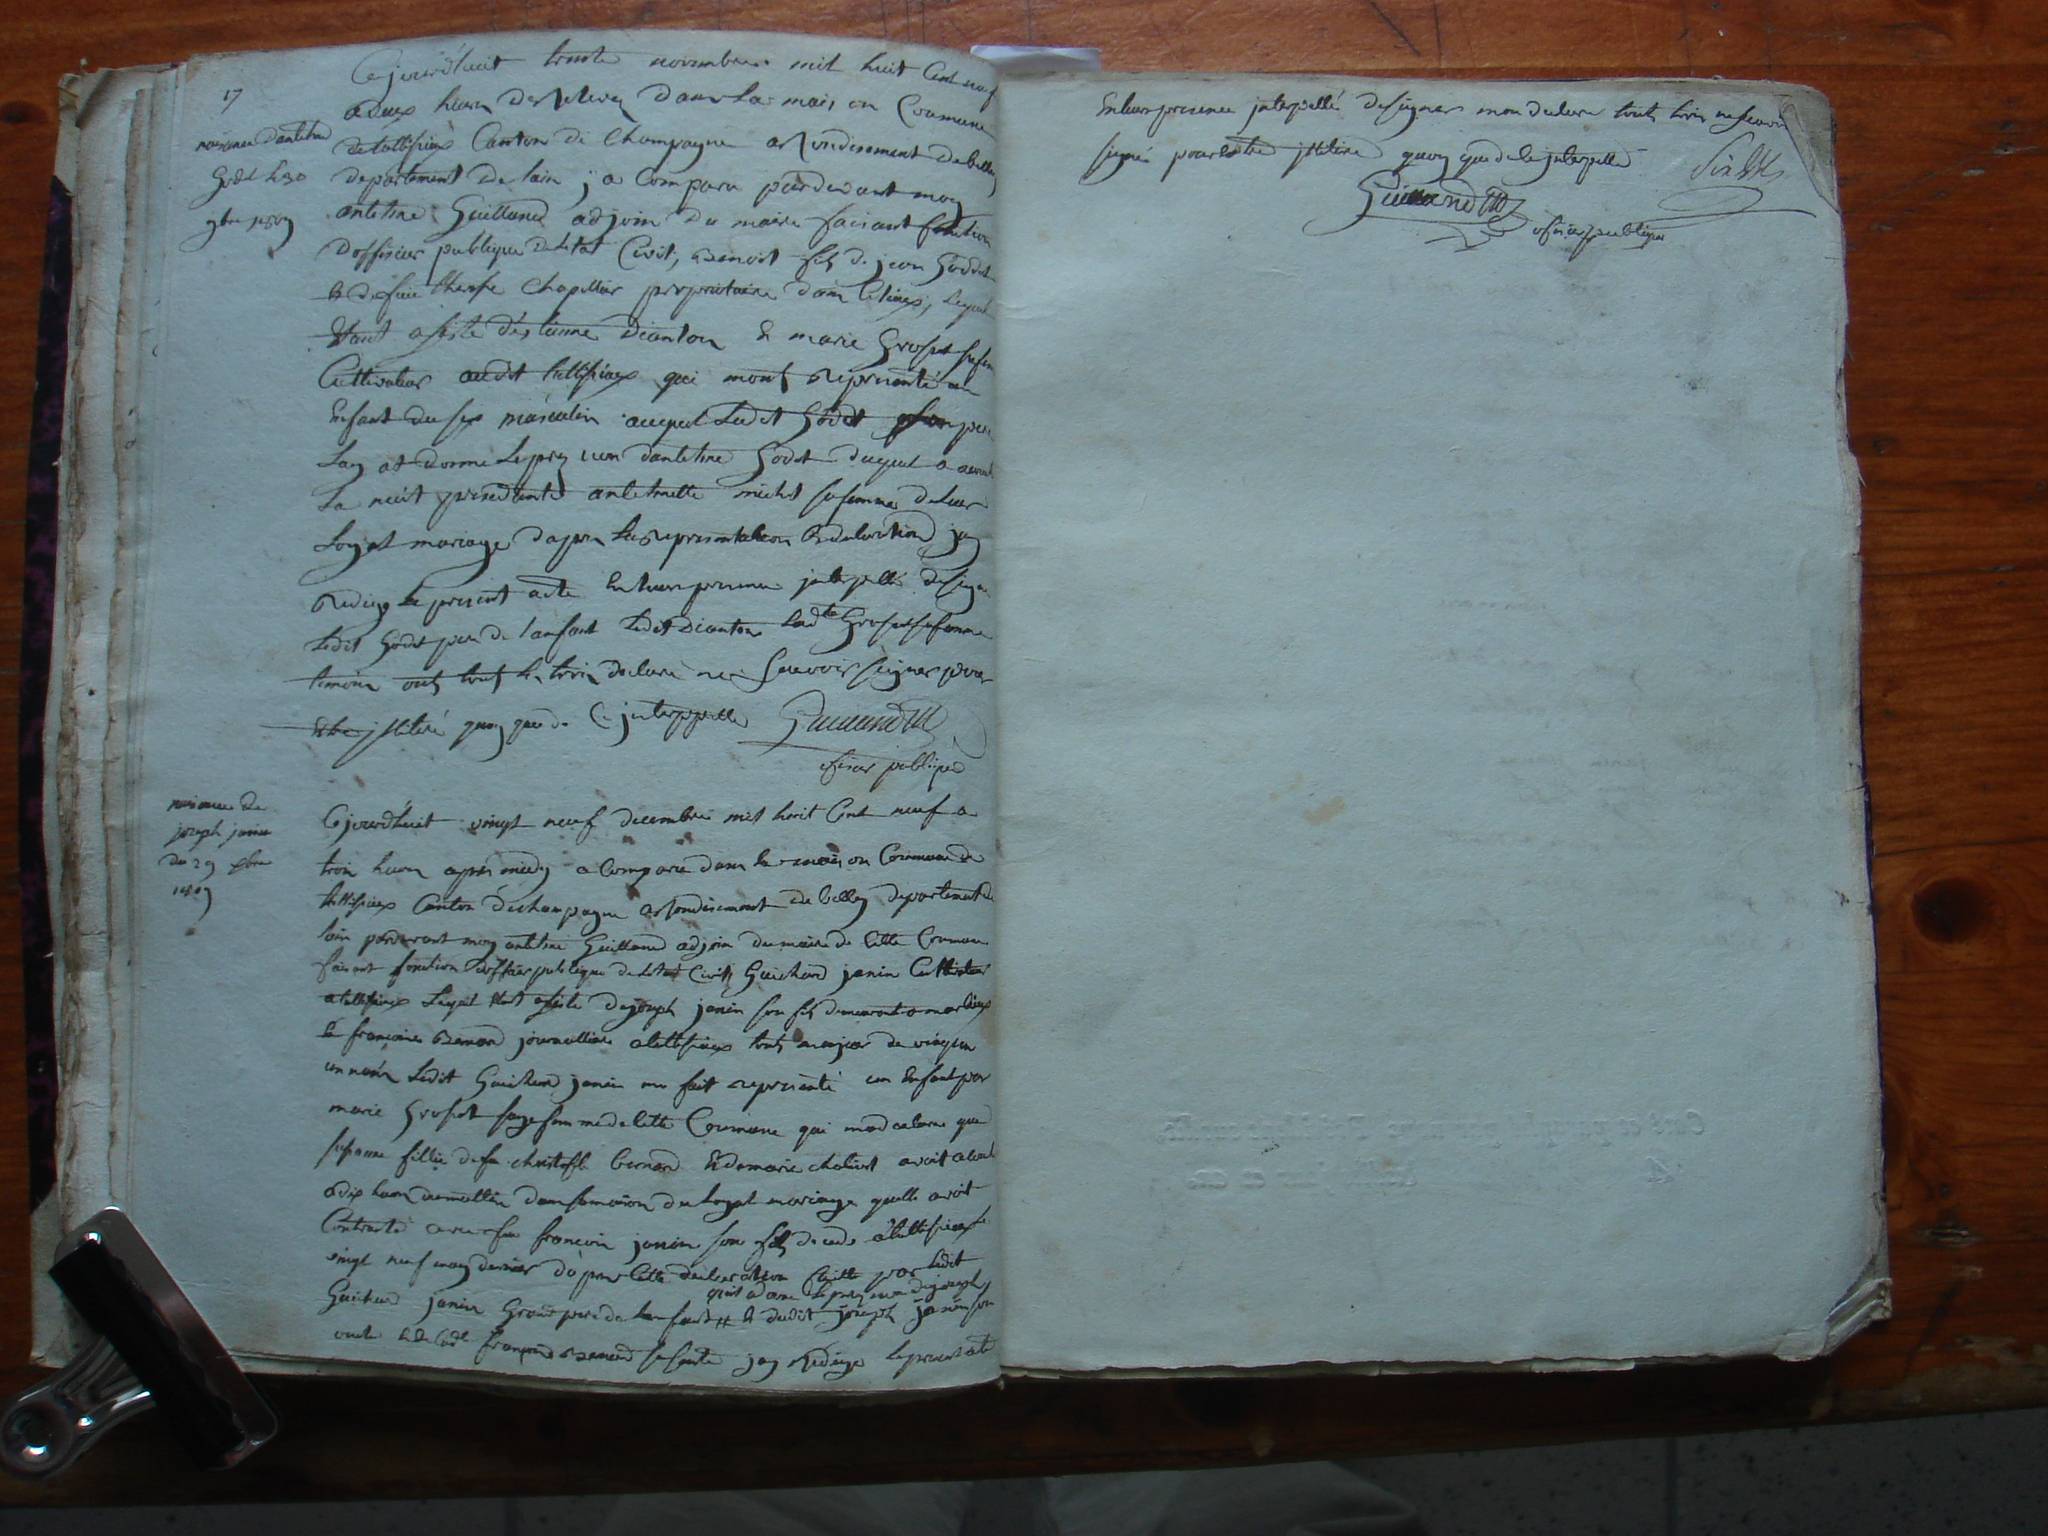 17
naisance dantelme
Godet le 30
9bre 1809
Ce jourd'huit trente novembre mil huit Cent neuf
a deux heures de relevez Dans la maison Commune
de tallissieux Canton de Champagne arondissement de belley
departement de lain j a Comparu pardevant moy
antelme Guilland adjoin du maire faisant fonction
Dofficier publique de letat Civil, Benoit fils de jean Godet
et de feue therese Chapellar propriétaire
Etant assisté d'estienne Dianton Et marie Grosset sa femme
Cultivateur audit tallissieux qui mont représenté un
Enfant du sex masculin auquel Ledit Godet père
Lay at donné Le prenom dantelme Godet duquel a acouché
La nuit précédante antelmette michel sa femme de leur
Loyal mariage d'apres La representation & declaration jay
Redigé Le present acte En leur presence jnterpellé de signer
Ledit Godet père de l'anfant Ledit Dianton Ladte Grosset sa femme
temoin onts touts les trois declaré ne Scavoir signer pour
Etre jlliteré quoy que de Ce jnterppellé Guilland
oficier publique
naisance de
joseph janin
du 29 xbre
1809
Ce jourd'huit vingt neuf decembre mil huit Cent neuf a
trois heures apres midy a Comparu dans la maison Commune de
tallissieux Canton de champagne arondissement de belley departement de
lain pardevant moy antelme Guilland adjoin du maire de Cette Commune
faisant fonction d'officier publique de Letat Civil Guichard janin Cultivateur
a tallissieux Lequel Etant assisté de joseph janin son fils demeurant a
Et françoise Bernard journalliere a tallissieux touts majeur de vingt un
Ledit Guichard janin ma fait representé un Enfant par
marie Grosset sage femme de Cette Commune qui ma declaré que
susanne fillie de feu christofle bernard Et de marie avoit acouché
a dix heures du mattin dans sa maison du Loyal mariage quelle avoit
Contracté avec feu françois janin son fils decedé a tallissieux Le
vingt neuf may dernier d'apres Cette declaration faitte par Ledit
quit a donné Le prenom de joseph
Guichard janin Grand père de Lanfant # Et dudit joseph janin son
oncle Et de Ladte françoise Bernard sa tante jay Redigé Le present acte
En leur presence jnterpellé de signer mon declaré touts trois ne scavoir
signer pour Etre jlliteré quoy que de Ce jnterpellé
Guilland
oficier publique